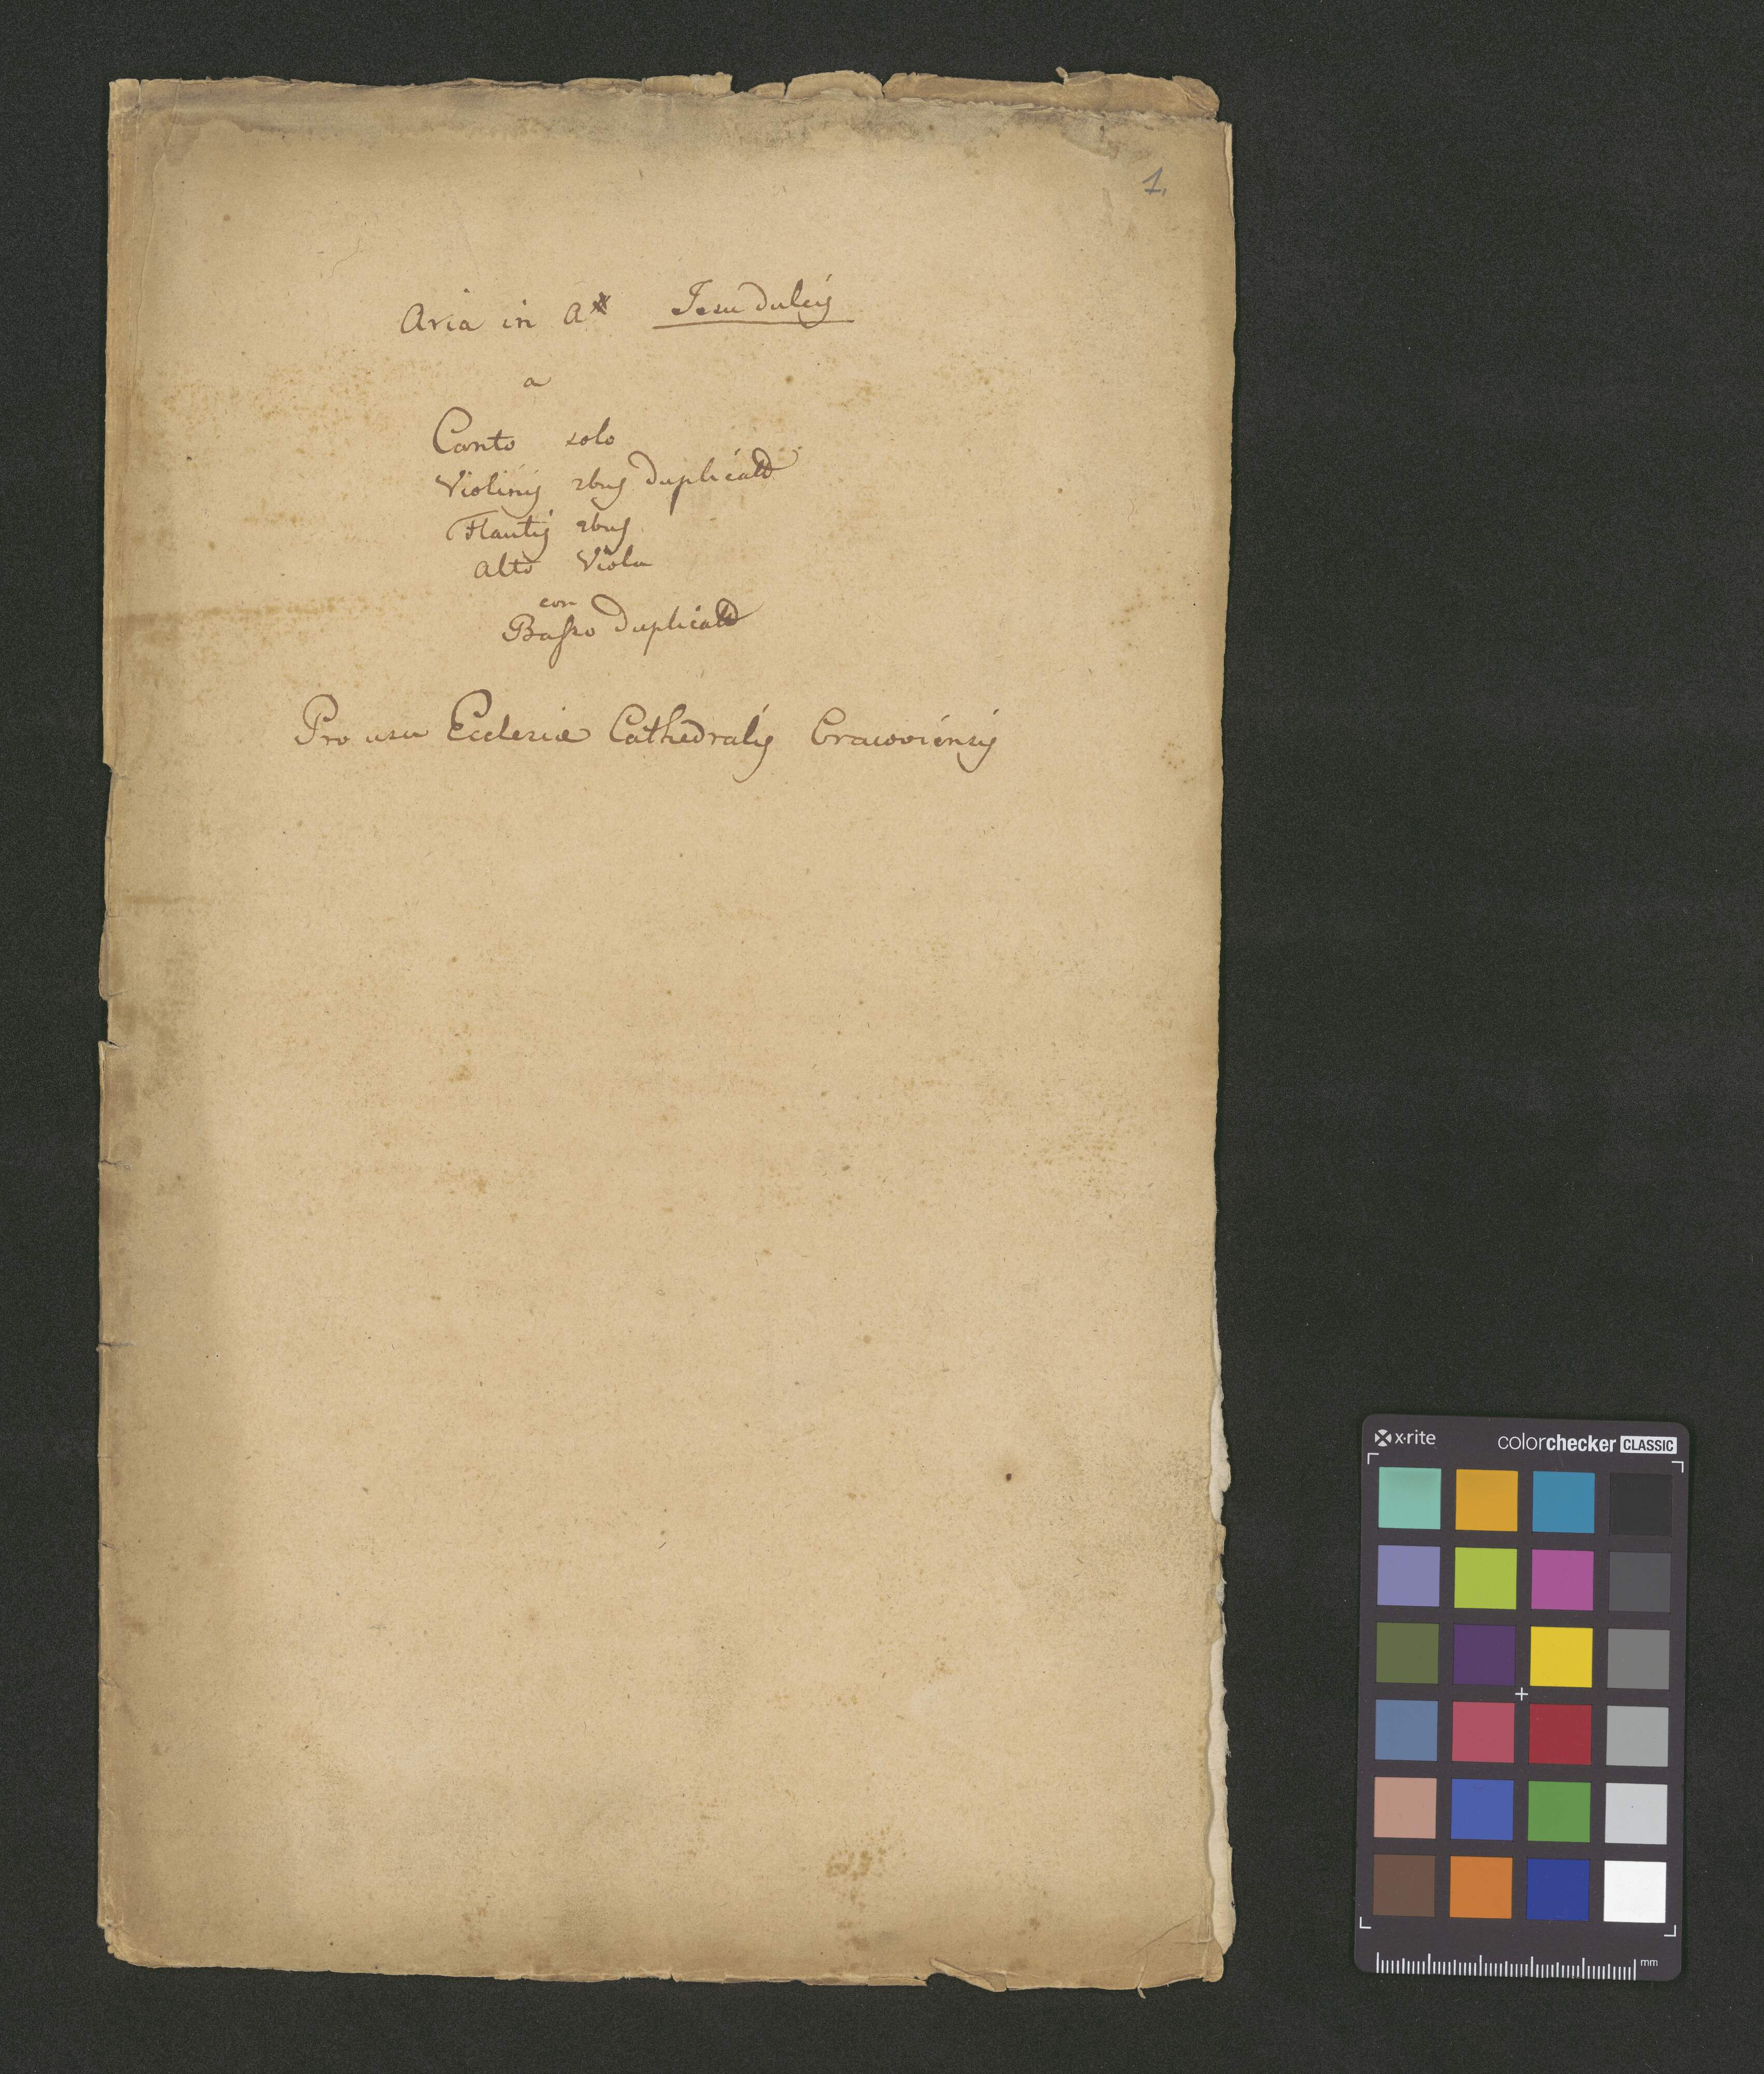 1.
Aria in A# Jesu dulcis
a
Canto solo
Violinis 2bus duplicato
Flautis 2bus
Alto Viola
con
Basso duplicato
Pro usu Ecclesiæ Cathedralis Cracoviensis
x·rite colorchecker CLASSIC
mm